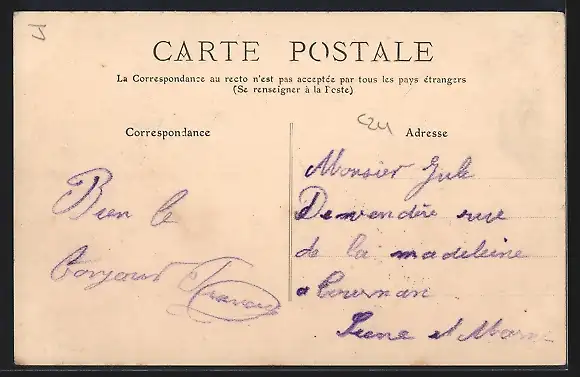 CARTE POSTALE
La Correspondance au recto n'est pas acceptée par tous les pays étrangers
(Se renseigner à la Poste)
Correspondance
Adresse
Bien le
bonjour
Monsieur Jule
rue
de la madeleine
a
Seine et Marne